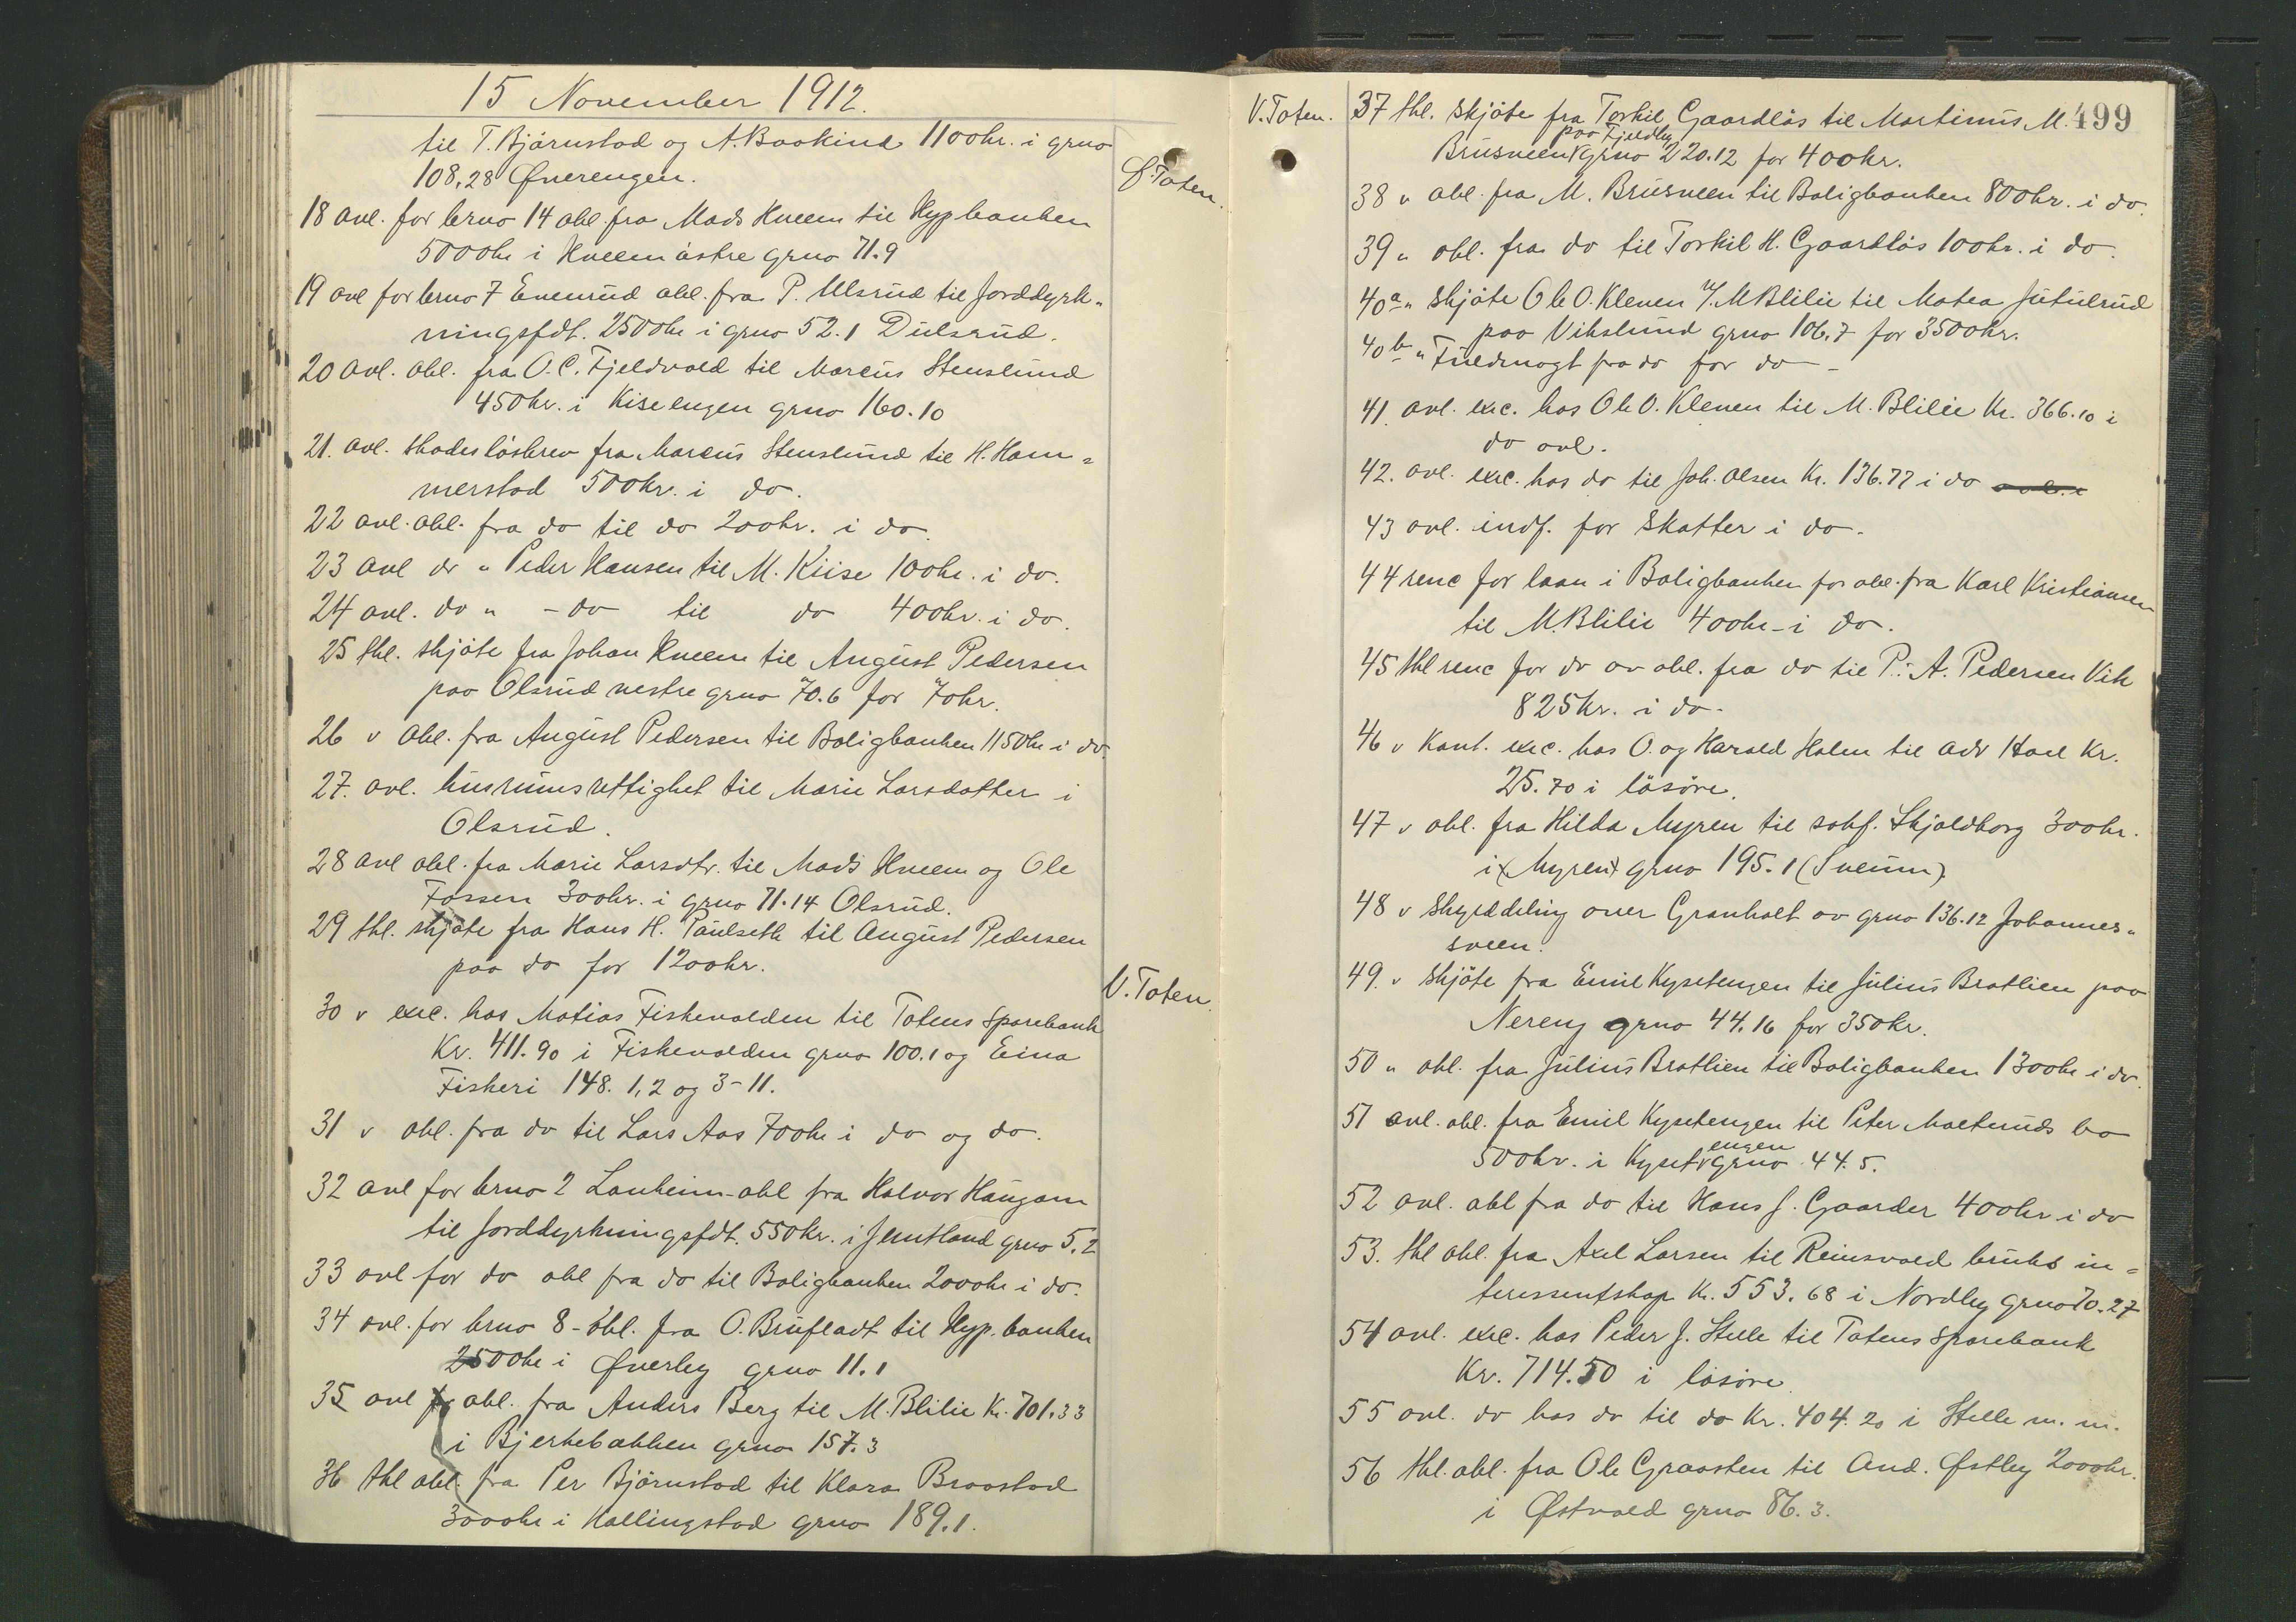 15 November 1912.
til T. Bjørnstad og A. Baskind 1100kr. i grno
108,28 Øverengen.
Ø. Toten.
18 avl. for brno 14 obl. fra Mads Kneem til Hypbanken
5000kr i Kneem østre grno 71.9
19 avl for brno 7 Evenrud obl. fra P. Ulsrud til Jorddyrk-
ningsfdt. 2500kr i grno 52.1 Dulsrud.
20 avl. obl. fra O. C. Fjeldvold til Marcus Stenslund
450kr. i Kiseengen grno 160.10
21. avl. skadesløsbrev fra Marcus Stenslund til H. Ham=
merstad 500kr. i do.
22 avl. obl. fra do til do 200kr. i do.
23 avl do " Peder Hansen til M. Kiise 100kr. i do.
24 avl. do " - do til do 400kr. i do.
25 thl. skjøte fra Johan Kneem til August Pedersen
paa Olsrud vestre grno 70.6 for 70kr.
26 v obl. fra August Pedersen til Boligbanken 1150kr i do.
27. avl. husrumsrettighet til Marie Larsdatter i
Olsrud.
28 avl obl. fra Marie Larsdtr. til Mads Kneem og Ole
Fossen 300kr. i grno 71.14 Olsrud.
29 thl. skjøte fra Hans H. Paulseth til August Pedersen
paa do for 1200kr.
V. Toten
30 v exc. hos Matias Fiskevolden til Totens Sparebank
Kr. 411.90 i Fiskevolden grno 100.1 og Eina
Fiskeri 148. 1,2 og 3-11.
31 v obl. fra do til Lars Aas 700kr i do og do.
32 avl for brno 2 Lanheim obl fra Halvor Haugam
til Jorddyrkningsfdt. 550kr. i Jemtland grno 5.2
33 avl for do obl fra do til Boligbanken 2000kr i do.
34 avl. for brno 8 - obl. fra O. Brufladt til Hyp. banken
2500kr i Øverby grno 11.1
35 avl obl. fra Anders Berg til M. Blilie Kr. 701.33
i Bjerkebakken grno 157.3
36 thl obl. fra Per Bjørnstad til Klara Braastad
3000kr i Kallingstad grno 189.1.
499
V. Toten. 37 thl. skjøte fra Torkil Gaardløs til Martinus M.
paa Fjeldby
Brusveen grno 220.12 for 400kr.
38 v obl. fra M. Brusveen til Boligbanken 800kr. i do.
39 " obl. fra do til Torkil H. Gaardløs 100kr. i do.
40a " skjøte Ole O. Kleven v/ M Blilie til Matea Jutulrud
paa Vikslund grno 106.7 for 3500kr.
40b " Fuldmagt fra do for do -
41. avl. exc. hos Ole O. Kleven til M. Blilie Kr. 366.10 i
do avl.
42. avl. exc. hos do til Joh. Olsen Kr. 136.77 i do
43 avl. indf. for Skatter i do.
44 renc for laan i Boligbanken for obl. fra Karl Kristiansen
til M. Blilie 400kr - i do.
45 thl renc for do av obl. fra do til P. A. Pedersen Vik
825kr. i do.
46 v Kont. exc. hos O. og Harald Holm til adv Hoel Kr.
25.70 i løsøre.
47 v obl. fra Hilda Myren til sakf. Skjoldborg 300kr.
i (Myren) grno 195.1 (Sveum).
48 v skylddeling over Granholt av grno 136.12 Johannes-
sveen.
49. v skjøte fra Emil Kysetengen til Julius Bratlien paa
Nereng grno 44.16 for 350kr.
50 " obl. fra Julius Bratlien til Boligbanken 1300kr i do.
51 avl. obl. fra Emil Kysetengen til Peter Malteruds bo
engen
500kr. i Kyset grno 44.5.
52 avl. obl fra do til Hans J. Gaarder 400kr i do
53. thl obl. fra Axel Larsen til Reinsvold bruks in=
teressentskap Kr. 553.68 i Nordby grno 70.27
54 avl. exc. hos Peder J. Stelle til Totens Sparebank
Kr. 714.50 i løsøre.
55 avl. do hos do til do Kr. 404.20 i Stelle m. m.
56 thl. obl. fra Ole Graasten til And. Østby 2000kr.
i Østvold grno 86.3.